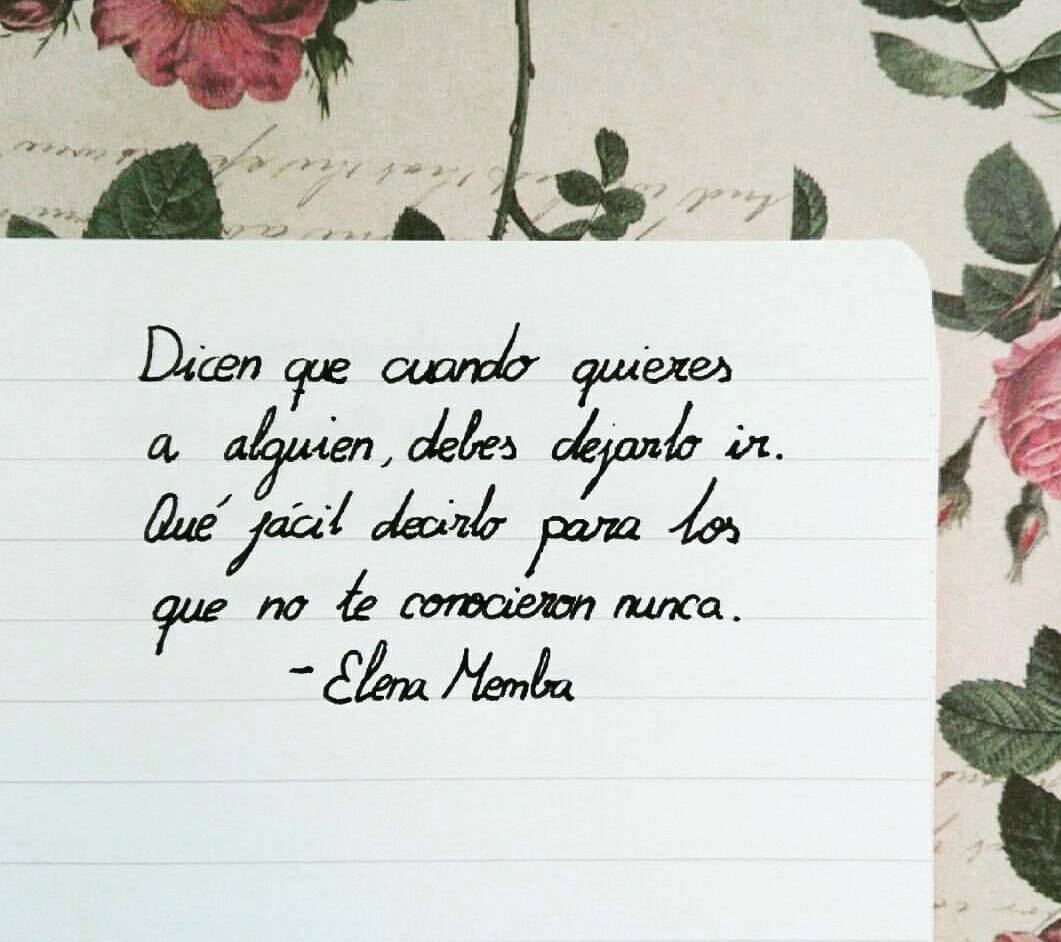 Dicen que cuando quieres
a alguien, debes dejarlo ir.
Qué fácil decirlo para los
que no te conocieron nunca.
- Elena Memba